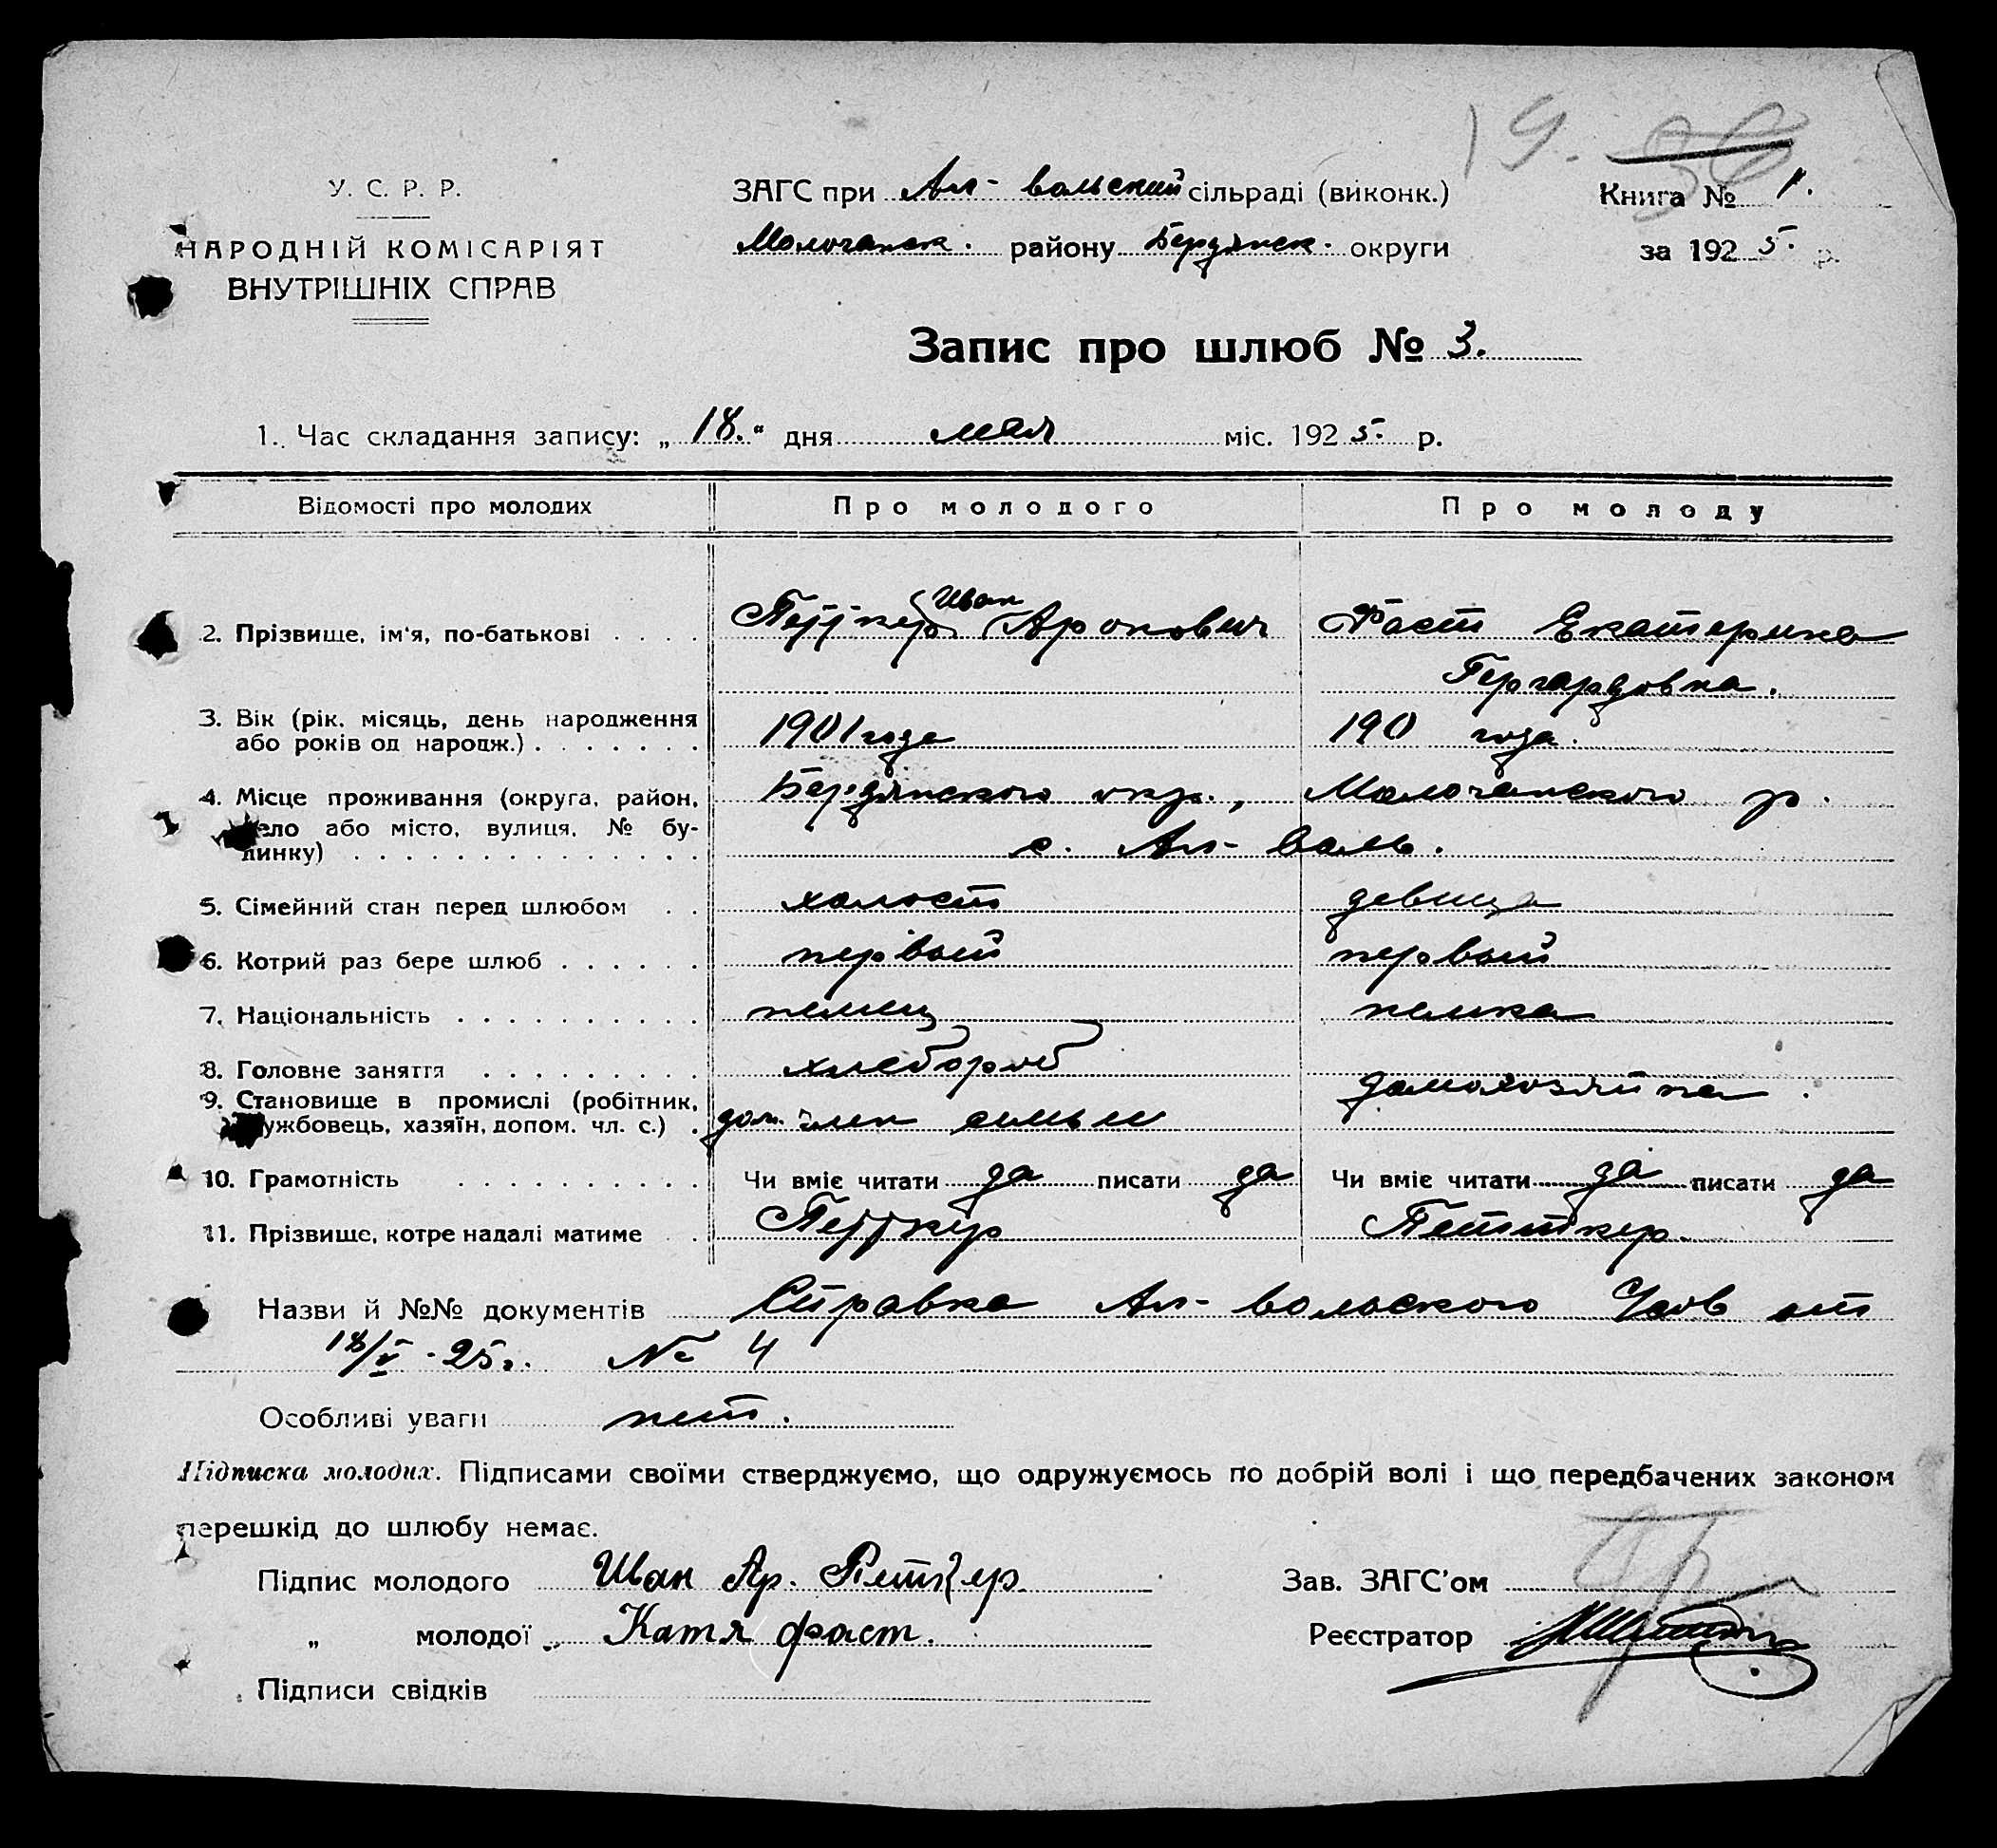 19. 36
У. С. Р. Р.
НАРОДНІЙ КОМІСАРІЯТ
ВНУТРІШНІХ СПРАВ
ЗАГС при Ал-вольский сільраді (виконк.)
Молочанск. району Бердянск. округи
Книга № 1.
за 1925. р.
Запис про шлюб № 3.
1. Час складання запису: „18.“ дня мая міс. 1925. р.
Відомості про молодих Про молодого Про молоду
2. Прізвище, ім'я, по-батькові . . . . Петкер Иван Аронович Фаст Екатерина
Гергардовна.
3. Вік (рік. місяць, день народження 1901 года 190 года.
або років од народж.) . . . . . . .
4. Місце проживання (округа, район, Бердянского окр., Молочанского р.
село або місто, вулиця, № бу- с. Ал-воль.
динку) . . . . . . . . . . . . . .
5. Сімейний стан перед шлюбом . . холост девица
6. Котрий раз бере шлюб . . . . . . первый первый
7. Національність . . . . . . . . . . немец немка
8. Головне заняття . . . . . . . . . хлебороб домохозяйка.
9. Становище в промислі (робітник,
службовець, хазяїн, допом. чл. с.) . дом. член семьи
10. Грамотність . . . . . . . . . . Чи вміє читати да писати да Чи вміє читати да писати да
11. Прізвище, котре надалі матиме . . Петкер Петткер.
Назви й №№ документів Справка Ал-вольского от
18/V-25г. № 4
Особливі уваги нет.
Підписка молодих. Підписами своїми стверджуємо, що одружуємось по добрій волі і що передбачених законом
перешкід до шлюбу немає.
Підпис молодого Иван Ар. Петкер
Зав. ЗАГС'ом
„ молодої Катя Фаст.
Реєстратор
Підписи свідків